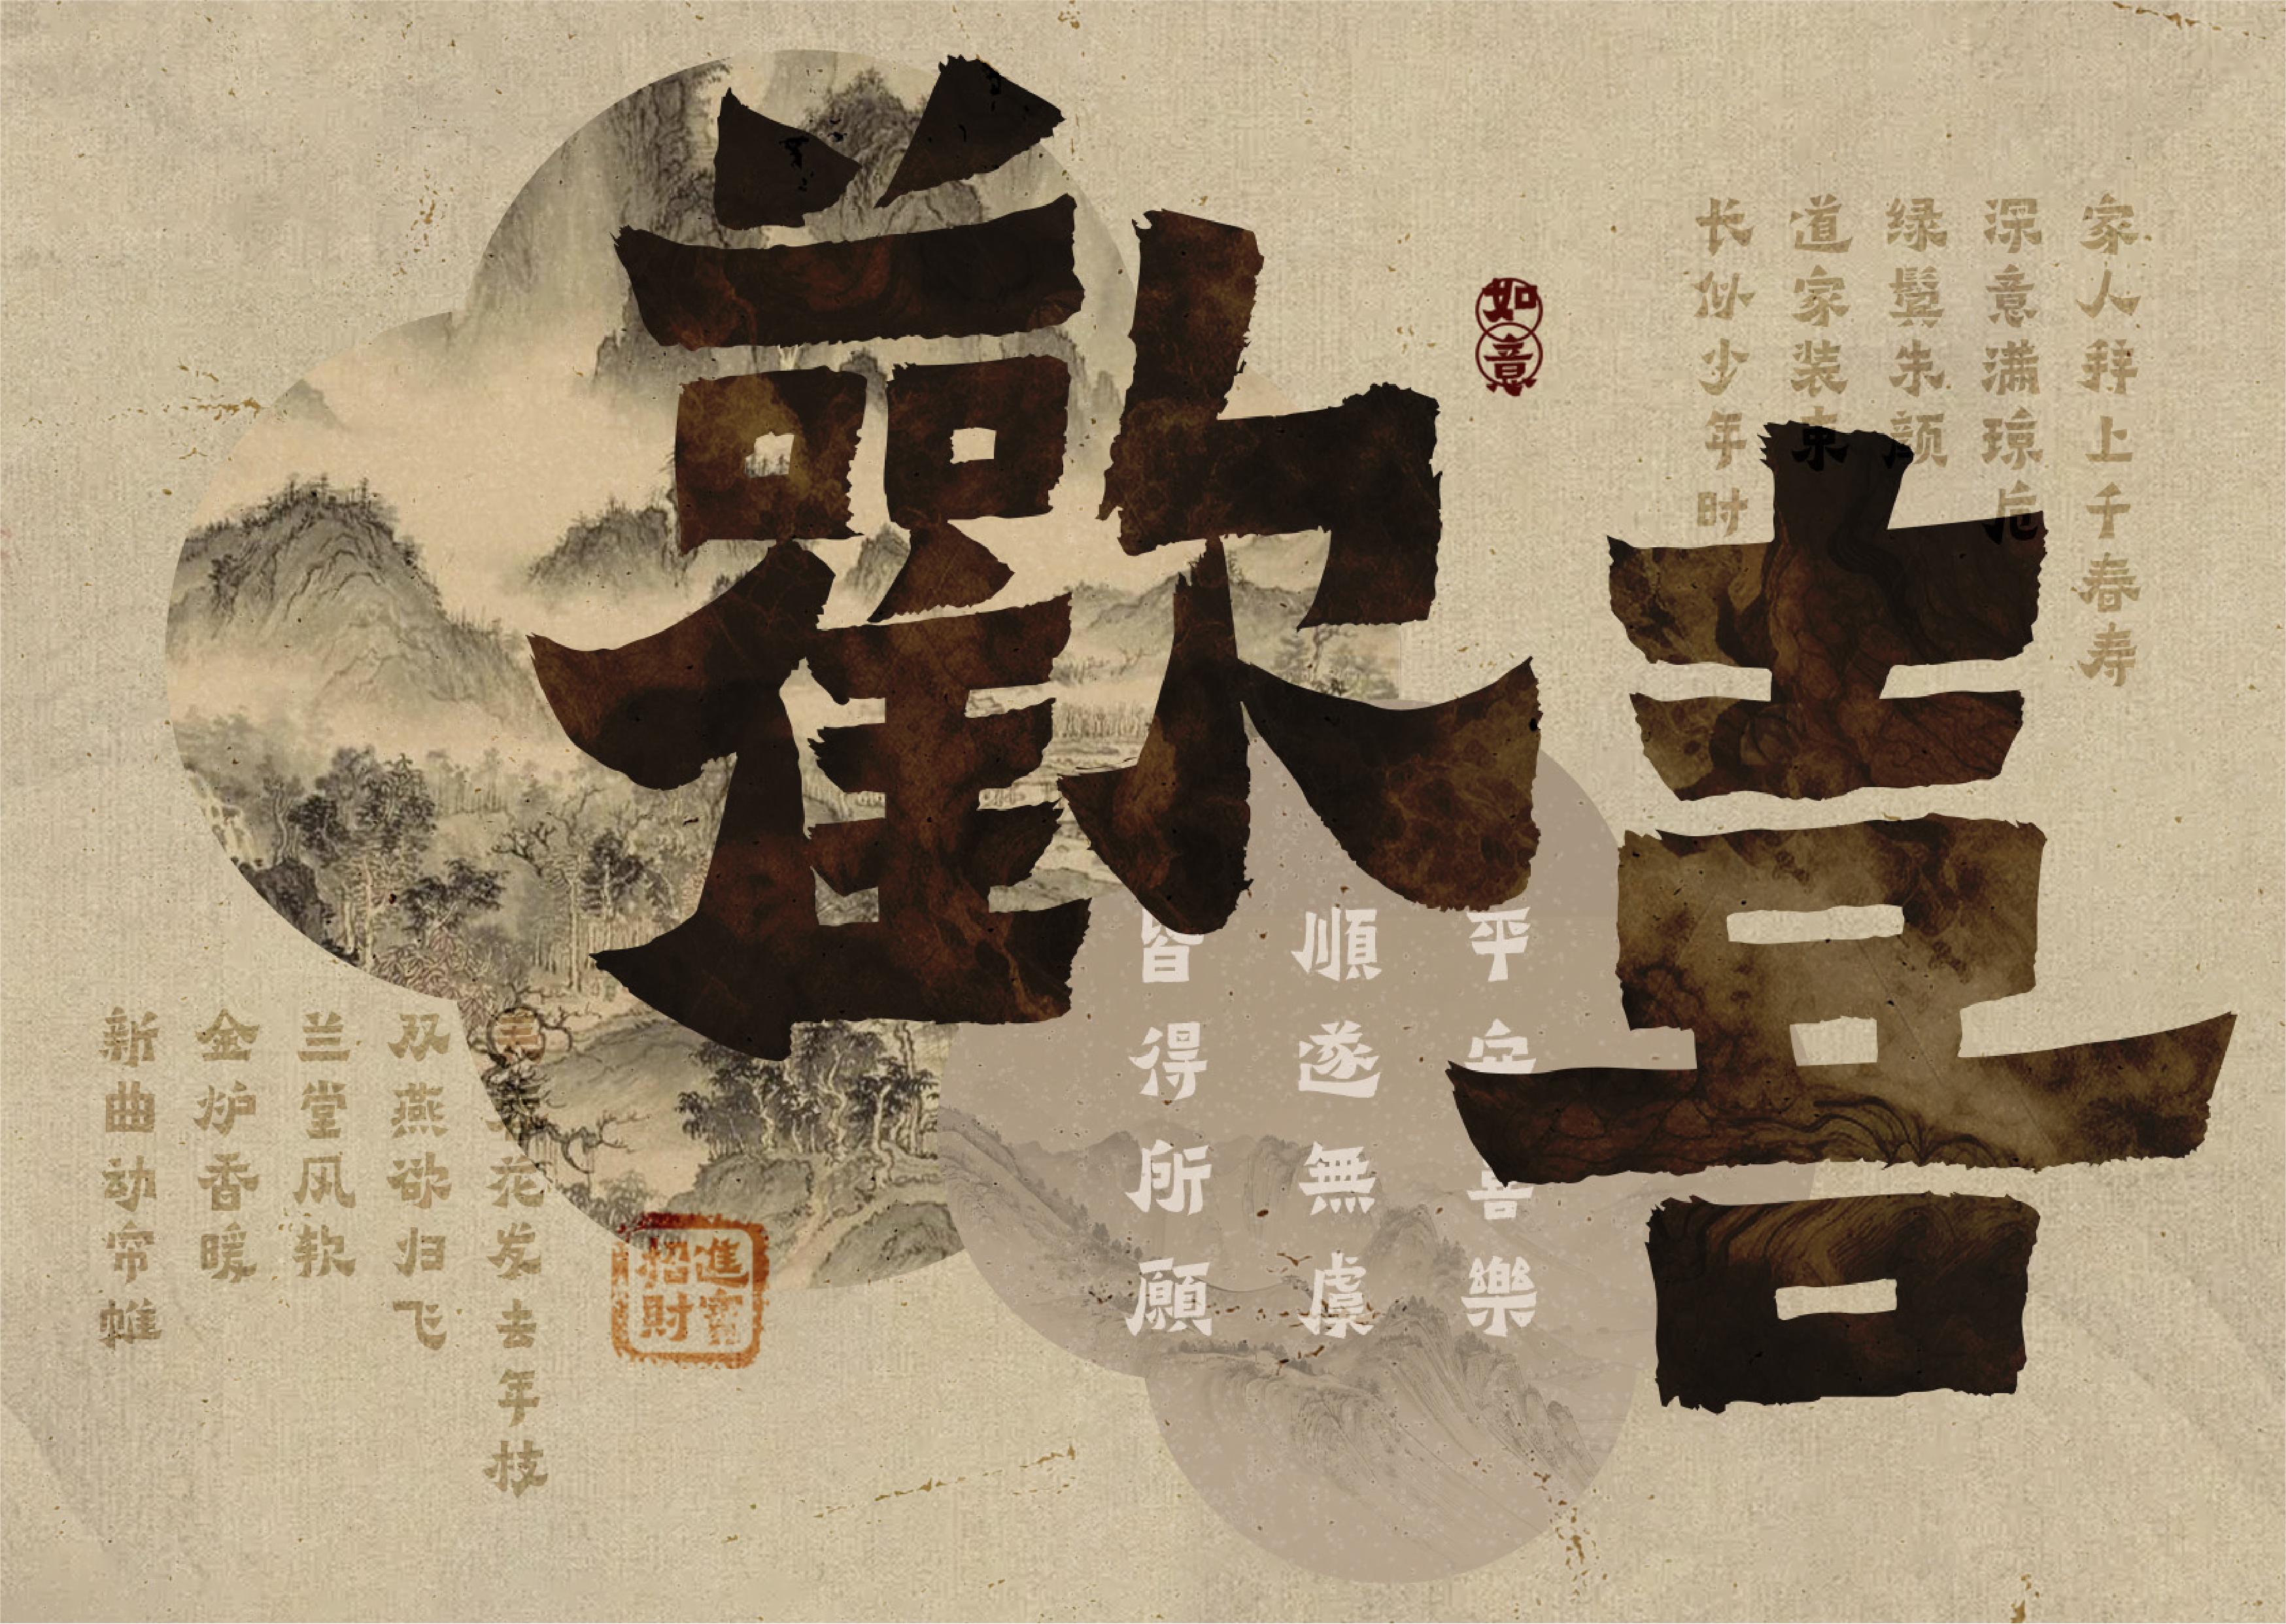 歡喜
如意
家人拜上千春寿
深意满琼卮
绿鬓朱颜
道家装束
长似少年时
平安喜樂
順遂無虞
皆得所願
芙蓉花发去年枝
双燕欲归飞
兰堂风软
金炉香暖
新曲动帘帷
招財進寶